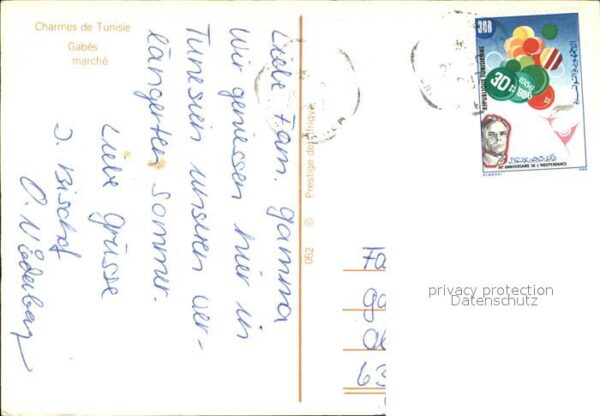 Charmes de Tunisie
Gabès
marché
Liebe Fam. gamma
Wir geniessen hier in
Tunesien unseren ver-
längerten Sommer.
Liebe Grüsse
J. Bischof
O. Niederberg
052 © Prestige de l'Afrique
380
REPUBLIQUE TUNISIENNE
30
1956
1986
30e ANNIVERSAIRE DE L'INDEPENDANCE
1986
Fa
ga
63
privacy protection
Datenschutz